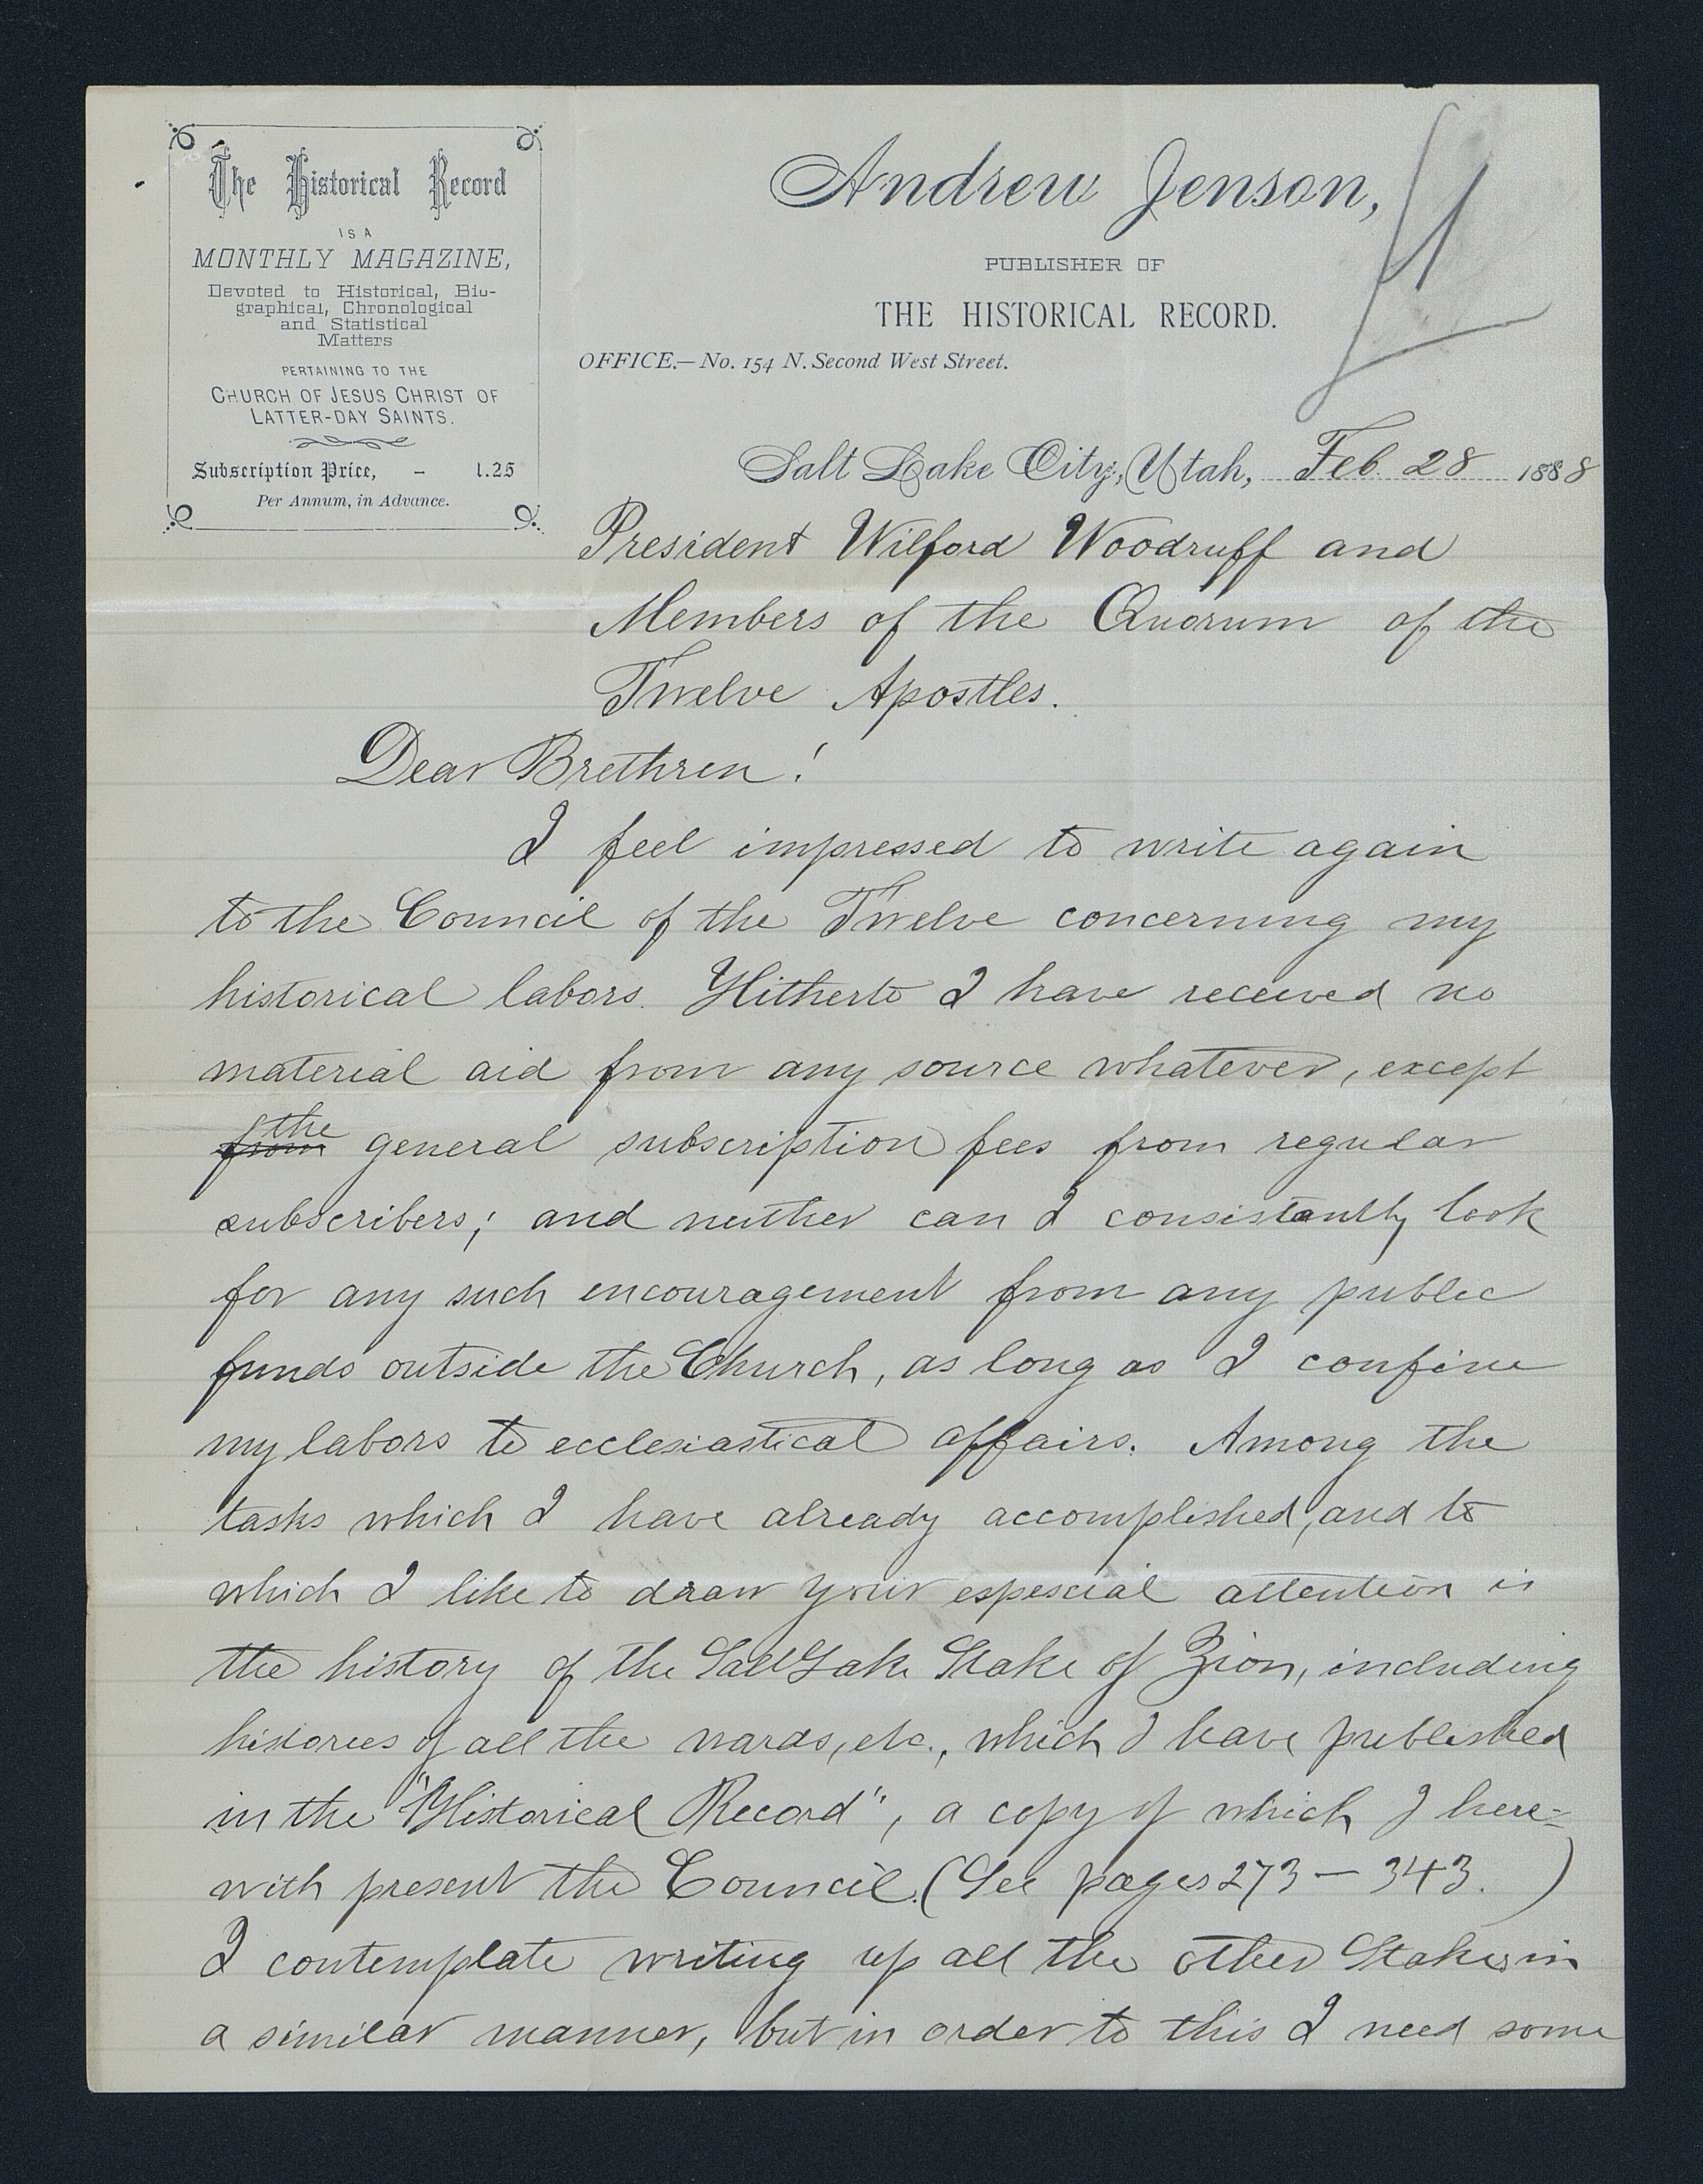 The Historical Record
IS A
MONTHLY MAGAZINE,
Devoted to Historical, Bio-
graphical, Chronological
and Statistical
Matters
PERTAINING TO THE
CHURCH OF JESUS CHRIST OF
LATTER-DAY SAINTS.
Subscription Price, - 1.25
Per Annum, in Advance.
Andrew Jenson,
PUBLISHER OF
THE HISTORICAL RECORD.
OFFICE.—No. 154 N. Second West Street.
Salt Lake City, Utah, Feb. 28 1888
President Wilford Woodruff and
Members of the Quorum of the
Twelve Apostles.
Dear Brethren!
I feel impressed to write again
to the Council of the Twelve concerning my
historical labors. Hitherto I have received no
material aid from any source whatever, except
from the general subscription fees from regular
subscribers; and neither can I consistantly look
for any such encouragement from any public
funds outside the Church, as long as I confine
my labors to ecclesiastical affairs. Among the
tasks which I have already accomplished, and to
which I like to draw your espescial attention is
the history of the Salt Lake Stake of Zion, including
histories of all the wards, etc., which I have published
in the "Historical Record", a copy of which I here=
with present the Council. (See pages 273 — 343. )
I contemplate writing up all the other Stakes in
a similar manner, but in order to this I need some